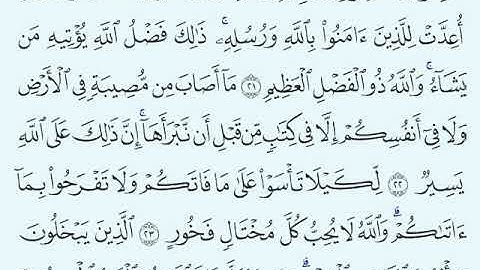 أُعِدَّتْ لِلَّذِينَ ءَامَنُوا۟ بِٱللَّهِ وَرُسُلِهِۦ ۚ ذَٰلِكَ فَضْلُ ٱللَّهِ يُؤْتِيهِ مَن
يَشَآءُ ۚ وَٱللَّهُ ذُو ٱلْفَضْلِ ٱلْعَظِيمِ ٢١ مَآ أَصَابَ مِن مُّصِيبَةٍ فِى ٱلْأَرْضِ
وَلَا فِىٓ أَنفُسِكُمْ إِلَّا فِى كِتَٰبٍ مِّن قَبْلِ أَن نَّبْرَأَهَآ ۚ إِنَّ ذَٰلِكَ عَلَى ٱللَّهِ
يَسِيرٌ ٢٢ لِّكَيْلَا تَأْسَوْا۟ عَلَىٰ مَا فَاتَكُمْ وَلَا تَفْرَحُوا۟ بِمَآ
ءَاتَىٰكُمْ ۗ وَٱللَّهُ لَا يُحِبُّ كُلَّ مُخْتَالٍ فَخُورٍ ٢٣ ٱلَّذِينَ يَبْخَلُونَ